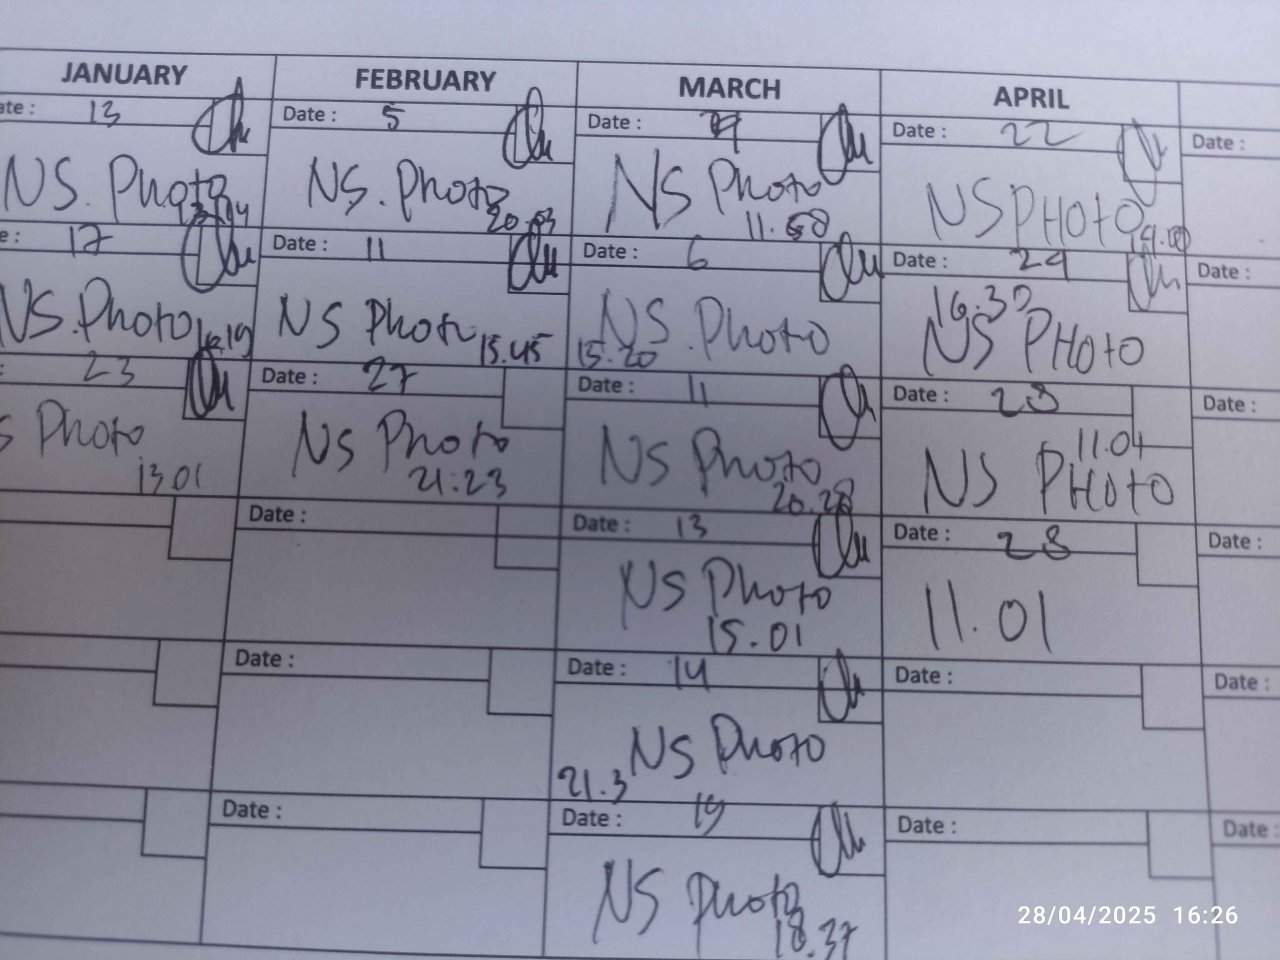 JANUARY FEBRUARY MARCH APRIL
ate : 13 Date : 5 Date : Date : 22 Date :
NS. Photo NS. Photo NS Photo NS PHOTO
20.03 11.58 19.00
e : 17 Date : 11 Date : 6 Date : 24 Date :
NS. Photo NS Photo NS. Photo 16.30
15.45 15.20 NS PHOTO
: 23 Date : 27 Date : 11 Date : 28 Date :
s Photo NS Photo NS Photo 11.01
13.01 21:23 20.28 NS PHOTO
Date : Date : 13 Date : 28 Date :
NS Photo 11.01
15.01
Date : Date : 14 Date : Date :
NS Photo
21.3
Date : Date : 19 Date : Date :
NS Photo
18.37
28/04/2025 16:26